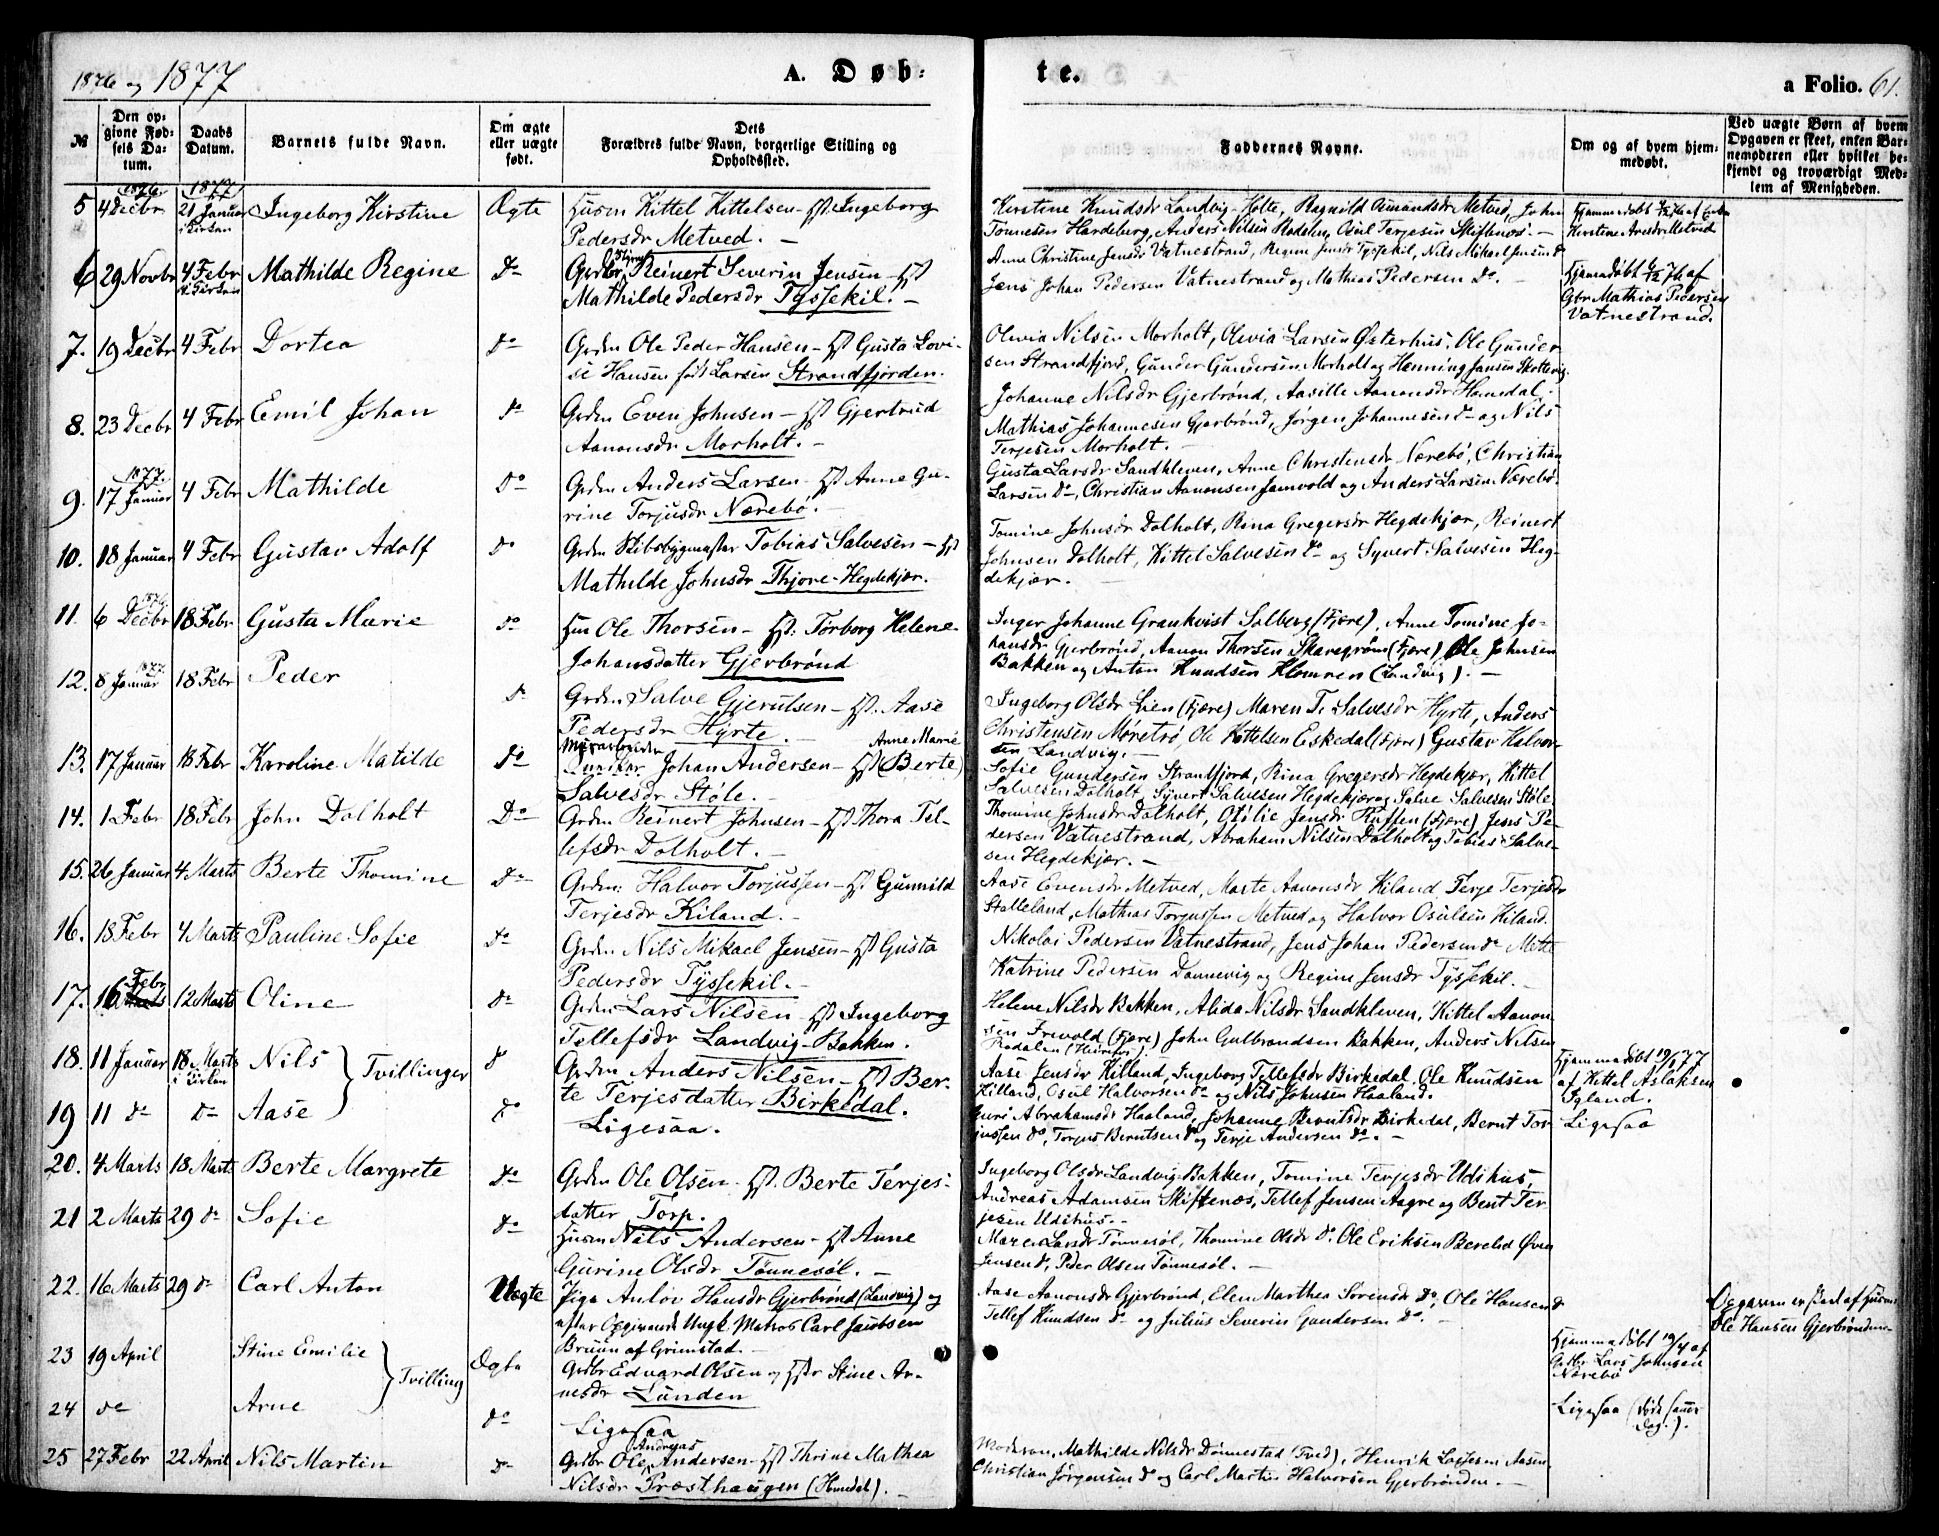 1876 og 1877
A. Døb-
te.
a Folio. 61.
№
Den op-
givne Fød-
sels Da-
tum.
Daabs
Datum.
Barnets fulde Navn.
Om ægte
eller uægte
født.
Dets
Forældres fulde Navn, borgerlige Stilling og
Opholdssted.
Faddernes Navne.
Om og af hvem hjem-
medøbt.
Ved uægte Børn af hvem
Opgaven er skeet, enten Bar-
nemoderen eller hvilket be-
kjendt og troværdigt Med-
lem af Menigheden.
1876 1877
5 4 Decbr 21 Januar i Kirken Ingeborg Kirstine Ægte Husm Kittel Kittelsen - Hst Ingeborg
Pedersdr Metved. -
Kirstine Knudsdr Landvig-Holte, Ragnild Amundsdr Metved, John
Tönnesen Hardeberg, Anders Nilsen Stodelen, Osul Terjesen Skiftenes. -
Hjemmedøbt af
Kirstine Metved
6 29 Novbr 4 Febr i Kirken Mathilde Regine Do Grdbr Reinert Severin Jensen - Hst
Mathilde Pedersdr Tyssekil. -
Anne Christine Jensdr Vatnestrand, Regine Jensdr Tyssekil, Nils Mikael Jensen do
Jens Johan Pedersen Vatnestrand og Mathias Pedersen Do. -
Hjemmedøbt 6/12 76 af
Gbr Mathias Pedersen
Vatnestrand.
7. 19 Decbr 4 Febr Dortea Do Grdm Ole Peder Hansen - Hst Gusta Lovi-
se Hansen født Larsen Strandfjorden.
Olivia Nilsen Morholt, Olivia Larsen Østerhus, Ole Gunder-
sen Strandfjord, Gunder Gundersen Morholt og Henning Jansen Skottevig.
8. 23 Decbr 4 Febr Emil Johan Do Grdm Even Johnsen - Hst Gjertrud
Aanonsdr Morholt. -
Johanne Nilsdr Gjerbrønd, Aasille Aanonsdr Homdal,
Mathias Johannesen Gjerbrønd, Jørgen Johannesen Do og Nils
Terjesen Morholt. -
1877.
9. 17 Januar 4 Febr Mathilde Do Grdm Anders Larsen - Hst Anne Gu-
rine Torjusdr Nærebö. -
Gusta Larsdr Sandkleven, Anne Christensdr Nærebö, Christian
Larsen Do, Christian Aanonsen Jamvold og Anders Larsen Nærebö.
10. 18 Januar 4 Febr Gustav Adolf Do Grdm Skibsbygmester Tobias Salvesen - Hst
Mathilde Johnsdr Thjore-Hegdekjær.
Tomine Johnsdr Dalholt, Rina Gregersdr Hegdekjær, Reinert
Johnsen Dalholt, Kittel Salvesen Do og Syvert Salvesen Heg-
dekjær. -
1876
11. 6 Decbr 18 Febr Gusta Marie Do Hm Ole Thorsen - Hst: Torborg Helene
Johansdatter Gjerbrønd
Inger Johanne Grankvist Solberg (Fjære), Anne Tomine Jo-
hansdr Gjerbrønd, Aanon Thorsen Skaregrøm (Fjære), Ole Johnsen
Bakken og Anton Knudsen Klomren (Landvig). -
1877
12. 8 Januar 18 Febr Peder Do Grdm Salve Gjerulsen - Hst. Aase
Pedersdr Hyrte. -
Ingeborg Olsdr Lien (Fjære) Maren T. Salvesdr Hyrte, Anders
Christensen Møretrø, Ole Kittelsen Eskedal (Fjære) Gustav Halvor-
sen Landvig. -
13. 17 Januar 18 Febr Karoline Matilde Do Johan Andersen - Hst (Berte) Anne Marie
Salvesdr Støle. -
Sofie Gundersen Strandfjord, Rina Gregersdr Hegdekjær, Kittel
Salvesen Dalholt, Syvert Salvesen Hegdekjær og Salve Salvesen Støle.
14. 1 Febr 18 Febr John Dalholt Do Grdm Reinert Johnsen - Hst Thora Tel-
lefsdr Dolholt. -
Thomine Johnsdr Dalholt, Otilie Jensdr Ruffen (Fjære) Jens Pe-
dersen Vatnestrand, Abraham Nilsen Dalholt og Tobias Salve-
sen Hegdekjær. -
15. 26 Januar 4 Marts Berte Thomine Do Grdm: Halvor Torjussen - Hst Gunnild
Terjesdr Kiland. -
Aase Evensdr Metved, Marte Aanonsdr Kiland, Terje Terjesen
Stalleland, Mathias Torjussen Metved og Halvor Osulsen Kiland.
16. 18 Febr 4 Marts Pauline Sofie Do Grdm Nils Mikael Jensen - Hst Gusta
Pedersdr Tyssekil. -
Nikolai Pedersen Vatnestrand, Jens Johan Pedersen Do Mette
Katrine Pedersen Dannevig og Regine Jensdr Tyssekil. -
17. 16 Febr 12 Marts Oline Do Grdm Lars Nilsen - Hst Ingeborg
Tellefsdr Landvig-Bakken.
Helene Nilsdr Bakken, Alida Nilsdr Sandkleven, Kittel Aanon-
sen Frevold (Fjære) John Gulbrandsen Bakken, Anders Nilsen
18. 11 Januar 18 Marts i Kirken Nils } Tvillinger Do Grdm Anders Nilsen - Hst Ber-
te Terjesdatter Birkedal.
Aase Jensdr Killand, Ingeborg Tellefsdr Birkedal, Ole Knudsen
Killand, Osul Halvorsen Do og Nils Johnsen Haaland.
Hjemmedøbt 19/1 77
af Kittel Aslaksen
Igland.
19 11 do do Aase Do Ligesaa.
Guri Abrahamsdr Haaland, Johanne Berntsdr Birkedal, Bernt Tor-
jussen Do, Torjus Berntsen Do og Terje Andersen Do. -
Ligesaa
20. 4 Marts 18 Marts Berte Margrete Do Grdm Ole Olsen - Hst. Berte Terjes-
datter Torp.
Ingeborg Olsdr Landvig-Bakken, Tomine Terjesdr Udihus,
Andreas Adamsen Skiftenæs, Tellef Jensen Aagre og Bent Ter-
jesen Udihus. -
21 2 Marts 29 do Sofie Do Husm Nils Andersen - Hst Anne
Gurine Olsdr Tönnesöl. -
Maren Larsdr Tönnesöl, Thomine Olsdr Do, Ole Eriksen Berelid Øvre
Jensen Do, Peder Olsen Tönnesöl. -
22. 16 Marts 29 do Carl Anton Uægte Pige Anlov Hansdr Gjerbrønd (Landvig) og
efter Opgivende Ungk. Matros Carl Jacobsen
Bruun af Grimstad. -
Aase Aanonsdr Gjerbrønd, Elen Marthea Sørensdr Do, Ole Hansen do
Tellef Knudsen Do og Julius Severin Gundersen Do. -
Opgaven er skeet af Husm
Ole Hansen Gjerbrønden
23 19 April Stine Emilie } Tvilling Ægte Grdbr Edvard Olsen og Hstr Stine Ar-
nesdr Lunden
Hjemmedøbt 19/4 af
Grdbr Lars Johnsen
Nærebö
24 do Arne do Ligesaa
Ligesaa (døde samme
Dag.).
25 27 Febr 22 April Nils Martin Do Grdbr Ole Andreas Andersen - Hst Thrine Mathea
Nilsdr Præsthaugen (Homdal). -
Moderen, Mathilde Nilsdr Dønnestad (Tved), Henrik Lassesen Aasen
Christian Jörgensen Do og Carl Martin Halvorsen Gjerbrønden. -